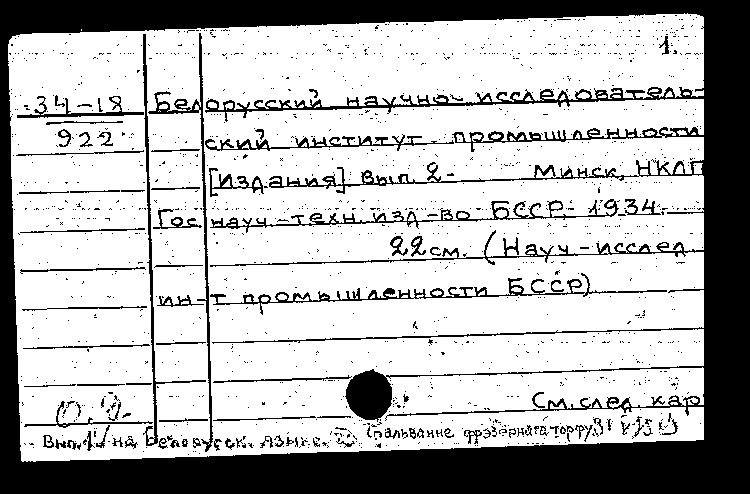 1.
34-18 Белорусский научно- исследователь-
922 ский институт промышленности
[Издания] Вып. 2- Минск, НКЛП
Гос науч-техн. изд-во БССР, 1934.
22 см. (Науч-исслед.
ин-т промышленности БССР)
См. след. кар
Вып. на Белорусск. языке. Спальванне фрэзернага торфу